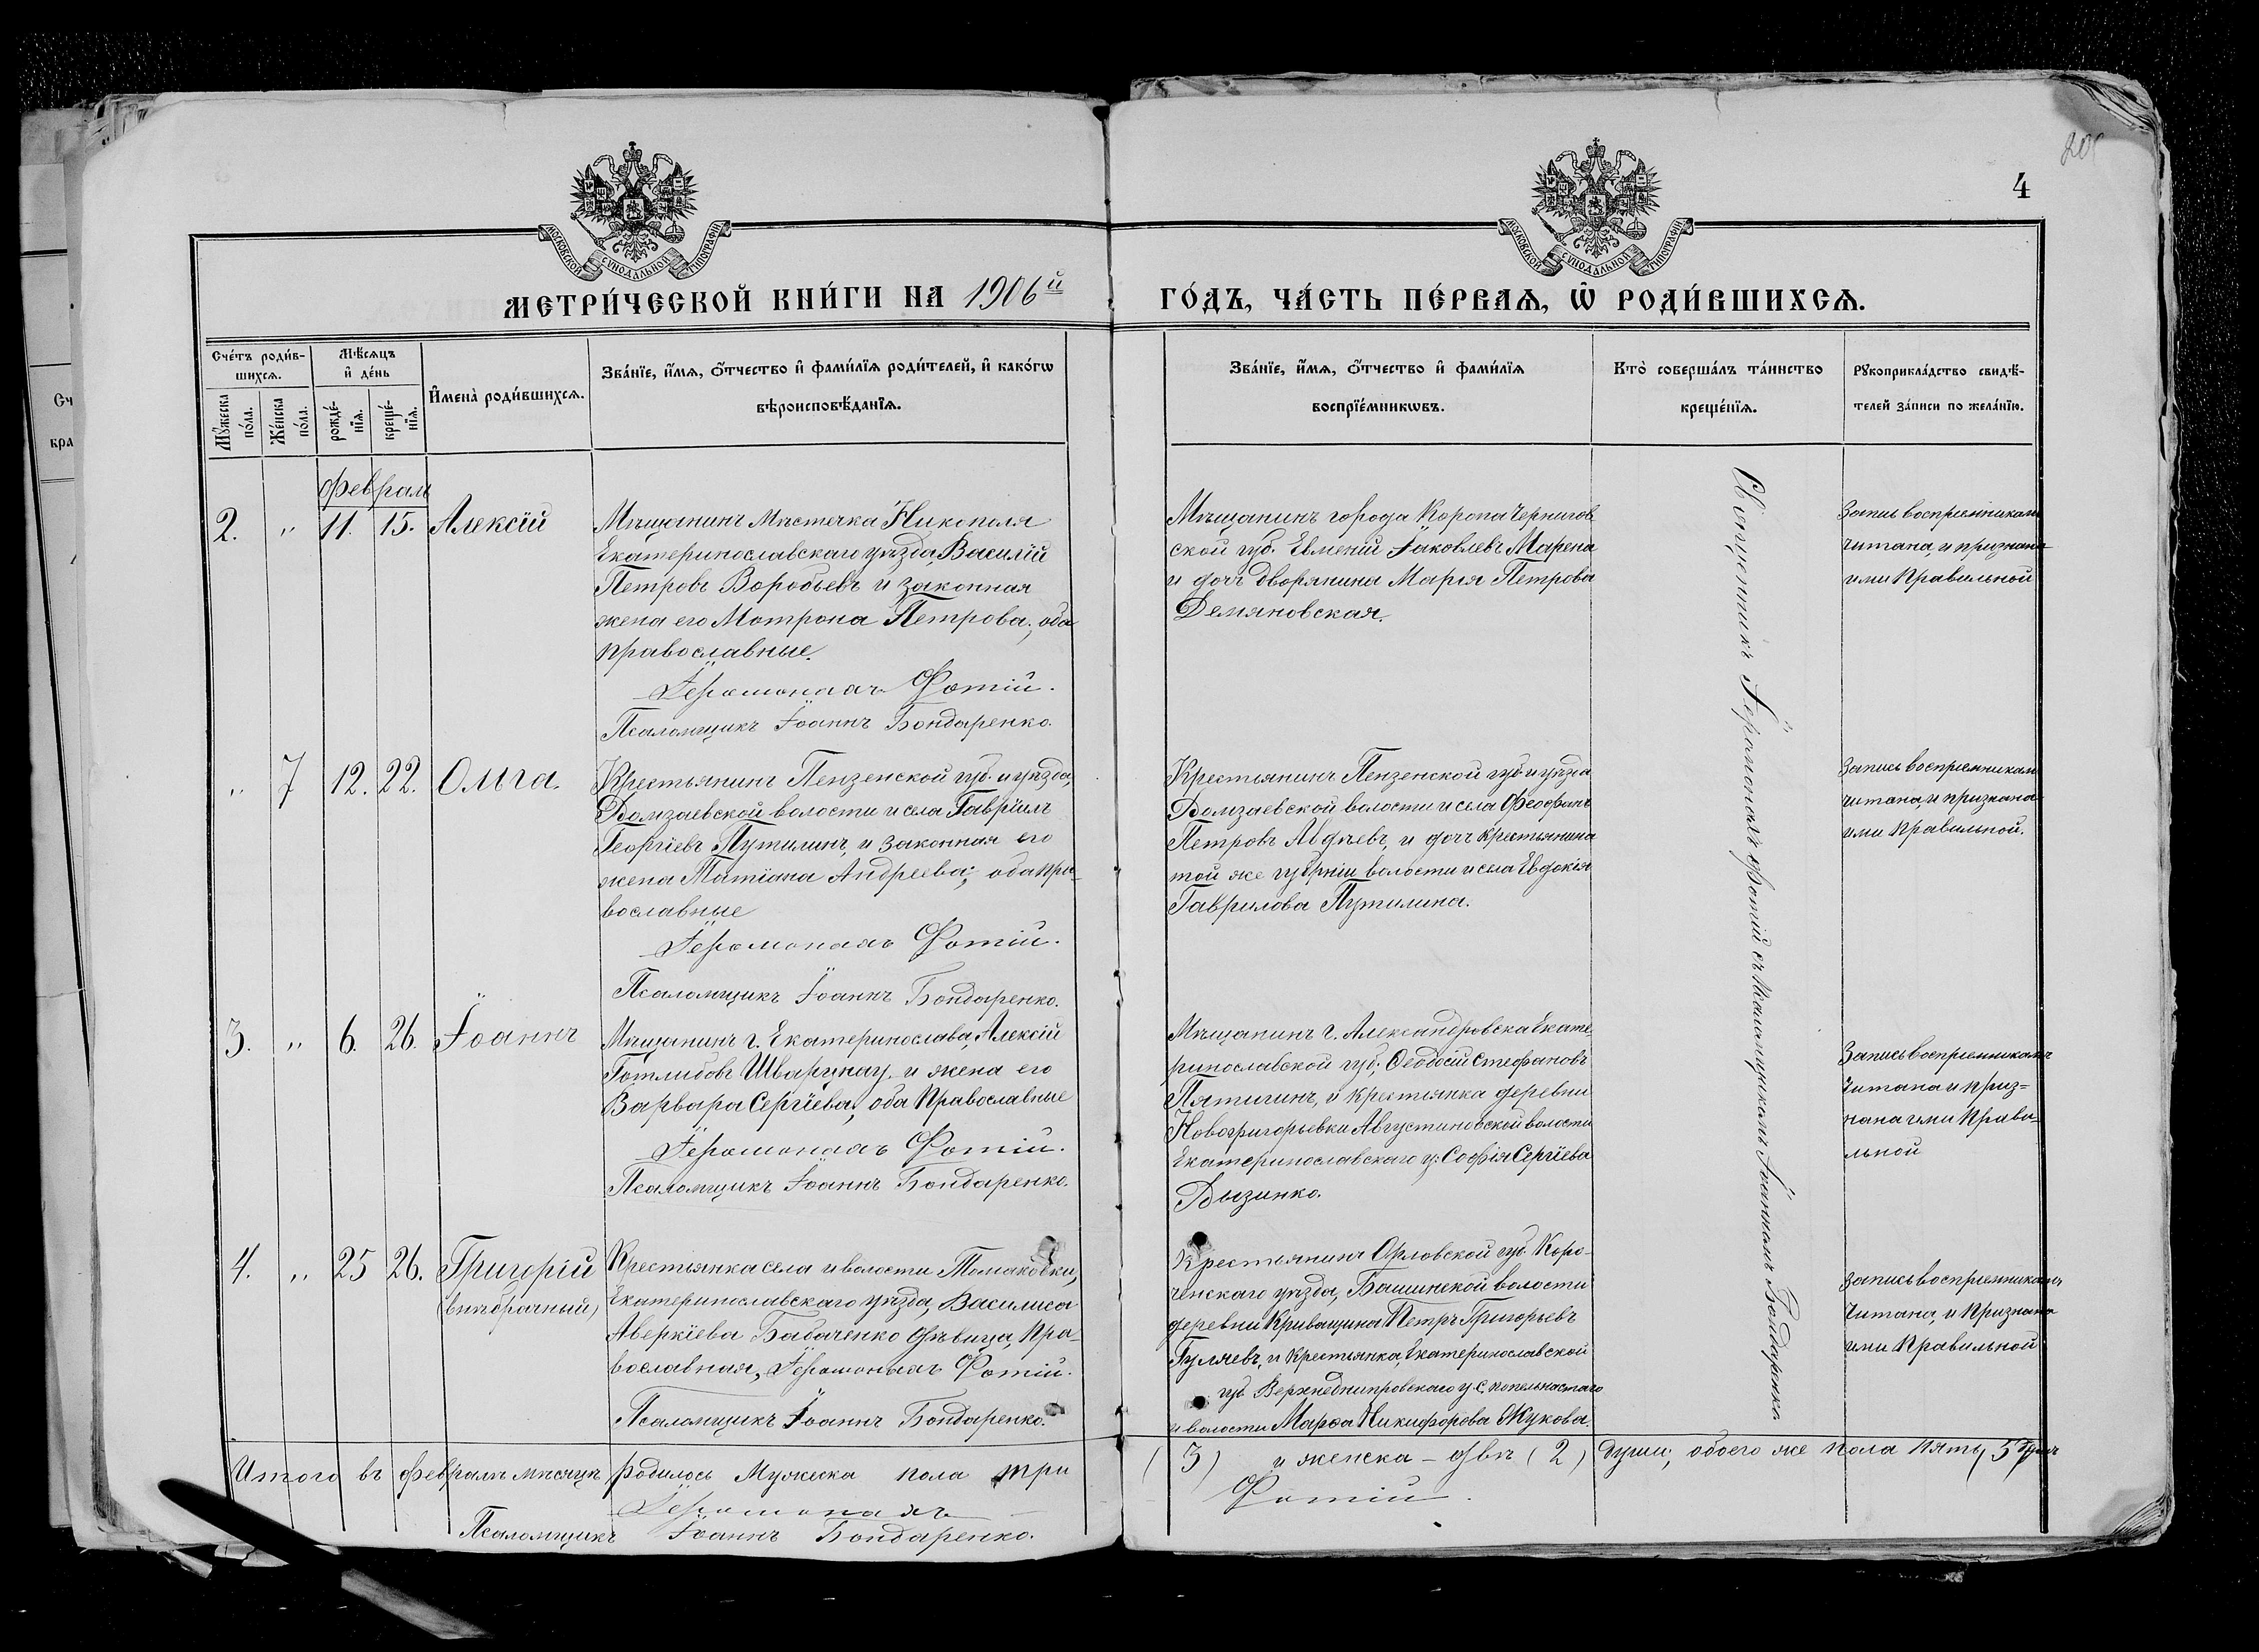 205
4
МОСКОВСКОЙ СѴНОДАЛЬНОЙ ТИПОГРАФІИ
МОСКОВСКОЙ СѴНОДАЛЬНОЙ ТИПОГРАФІИ
МЕТРИ́ЧЕСКОЙ КНИ́ГИ НА 1906й ГО́ДЪ, ЧА́СТЬ ПЕ́РВАѦ, Ѡ҆ РОДИ́ВШИХСѦ.
Сче́тъ роди́в-
шихсѧ.
Мꙋ́жеска по́ла.
Же́нска по́ла.
Мѣ́сѧцъ
и҆ де́нь
рожде́-
нїѧ.
креще́-
нїѧ.
И҆мена̀ роди́вшихсѧ.
Зва́нїе, и҆́мѧ, ѻ҆́тчество и҆ фами́лїѧ роди́телей, и҆ како́гѡ
вѣроисповѣ́данїѧ.
Зва́нїе, и҆́мѧ, ѻ҆́тчество и҆ фами́лїѧ
воспрїе́мникѡвъ.
Кто̀ соверша́лъ та́инство
креще́нїѧ.
Рꙋкоприкла́дство свидѣ́-
телей за́писи по жела́нїю.
Февраль
2. „ 11. 15. Алексій
Мѣщанинъ Мѣстечка Никополя
Екатеринославскаго уѣзда, Василій
Петровъ Воробьевъ и законная
жена его Мотрона Петрова; оба
православные.
Іеромонахъ Фотій.
Псаломщикъ Іоаннъ Бондаренко.
Мѣщанинъ города Коропа Чернигов
ской губ. Евмений Іаковлевъ Марена
и дочъ дворянина Марія Петрова
Демяновская.
Запись восприемникамъ
читана, и признана
ими Правильной
„ 7 12. 22. Ольга.
Крестьянинъ Пензенской губ. и уѣзда,
Домзаевской волости и села Гавріилъ
Георгіевъ Путилинъ, и законная его
жена Татіана Андреева; оба пра-
вославные
Іеромонахъ Фотій.
Псаломщикъ Іоаннъ Бондаренко.
Крестьянинъ Пензенской губ. и уѣзда
Домзаевской волости и села Феофанъ
Петровъ Авдѣевъ, и дочъ крестьянина
той же губрніи волости и села Евдокія
Гаврилова Путилина.
Запись восприемникам
читана, и признана
ими Правильной.
3. „ 6. 26. Іоаннъ
Мѣщанинъ г. Екатеринослава, Алексій
Готлибовъ Шварцнау и жена его
Варвара Сергіева; оба Православные
Іеромонахъ Фотій.
Псаломщикъ Іоаннъ Бондаренко.
Мѣщанинъ г. Александровска Екате
ринославской губ; Феодосій Стефановъ
Пятигинъ, и крестьянка деревни
Новогригорьевки Августиновской волости
Екатеринославскаго у: Софія Сергіева
Дызинко.
Запись восприемникамъ
читана и приз-
нана ими Прави-
льной
4. „ 25 26. Григорій
(внѣбрачный)
Крестьянка села и волости Томаковки,
Екатеринославскаго уѣзда, Василиса
Аверкіева Бабаченко дѣвица, Пра-
вославная, Іеромонахъ Фотій.
Псаломщикъ Іоаннъ Бондаренко.
Крестьянинъ Орловской губ. Коро-
ченскаго уѣзда, Башинской волости
деревни Криващина Петръ Григорьевъ
Гуляевъ, и крестьянка, Екатеринославской
губ. Верхнеднипровскаго у. с. Попельнастаго
и волости Марѳа Никифорова Жукова.
Запись восприемникамъ
читана, и Признана
ими Правильной
Священникъ Іеромонахъ Фотій съ Псаломщикомъ Іоанномъ Бондаренко
Итого въ февралѣ мѣсяцѣ родилось Мужеска пола три (3) и женска - двѣ (2) души; обоего же пола пять 5 душъ
Іеромонахъ Фотій.
Псаломщикъ Іоаннъ Бондаренко.